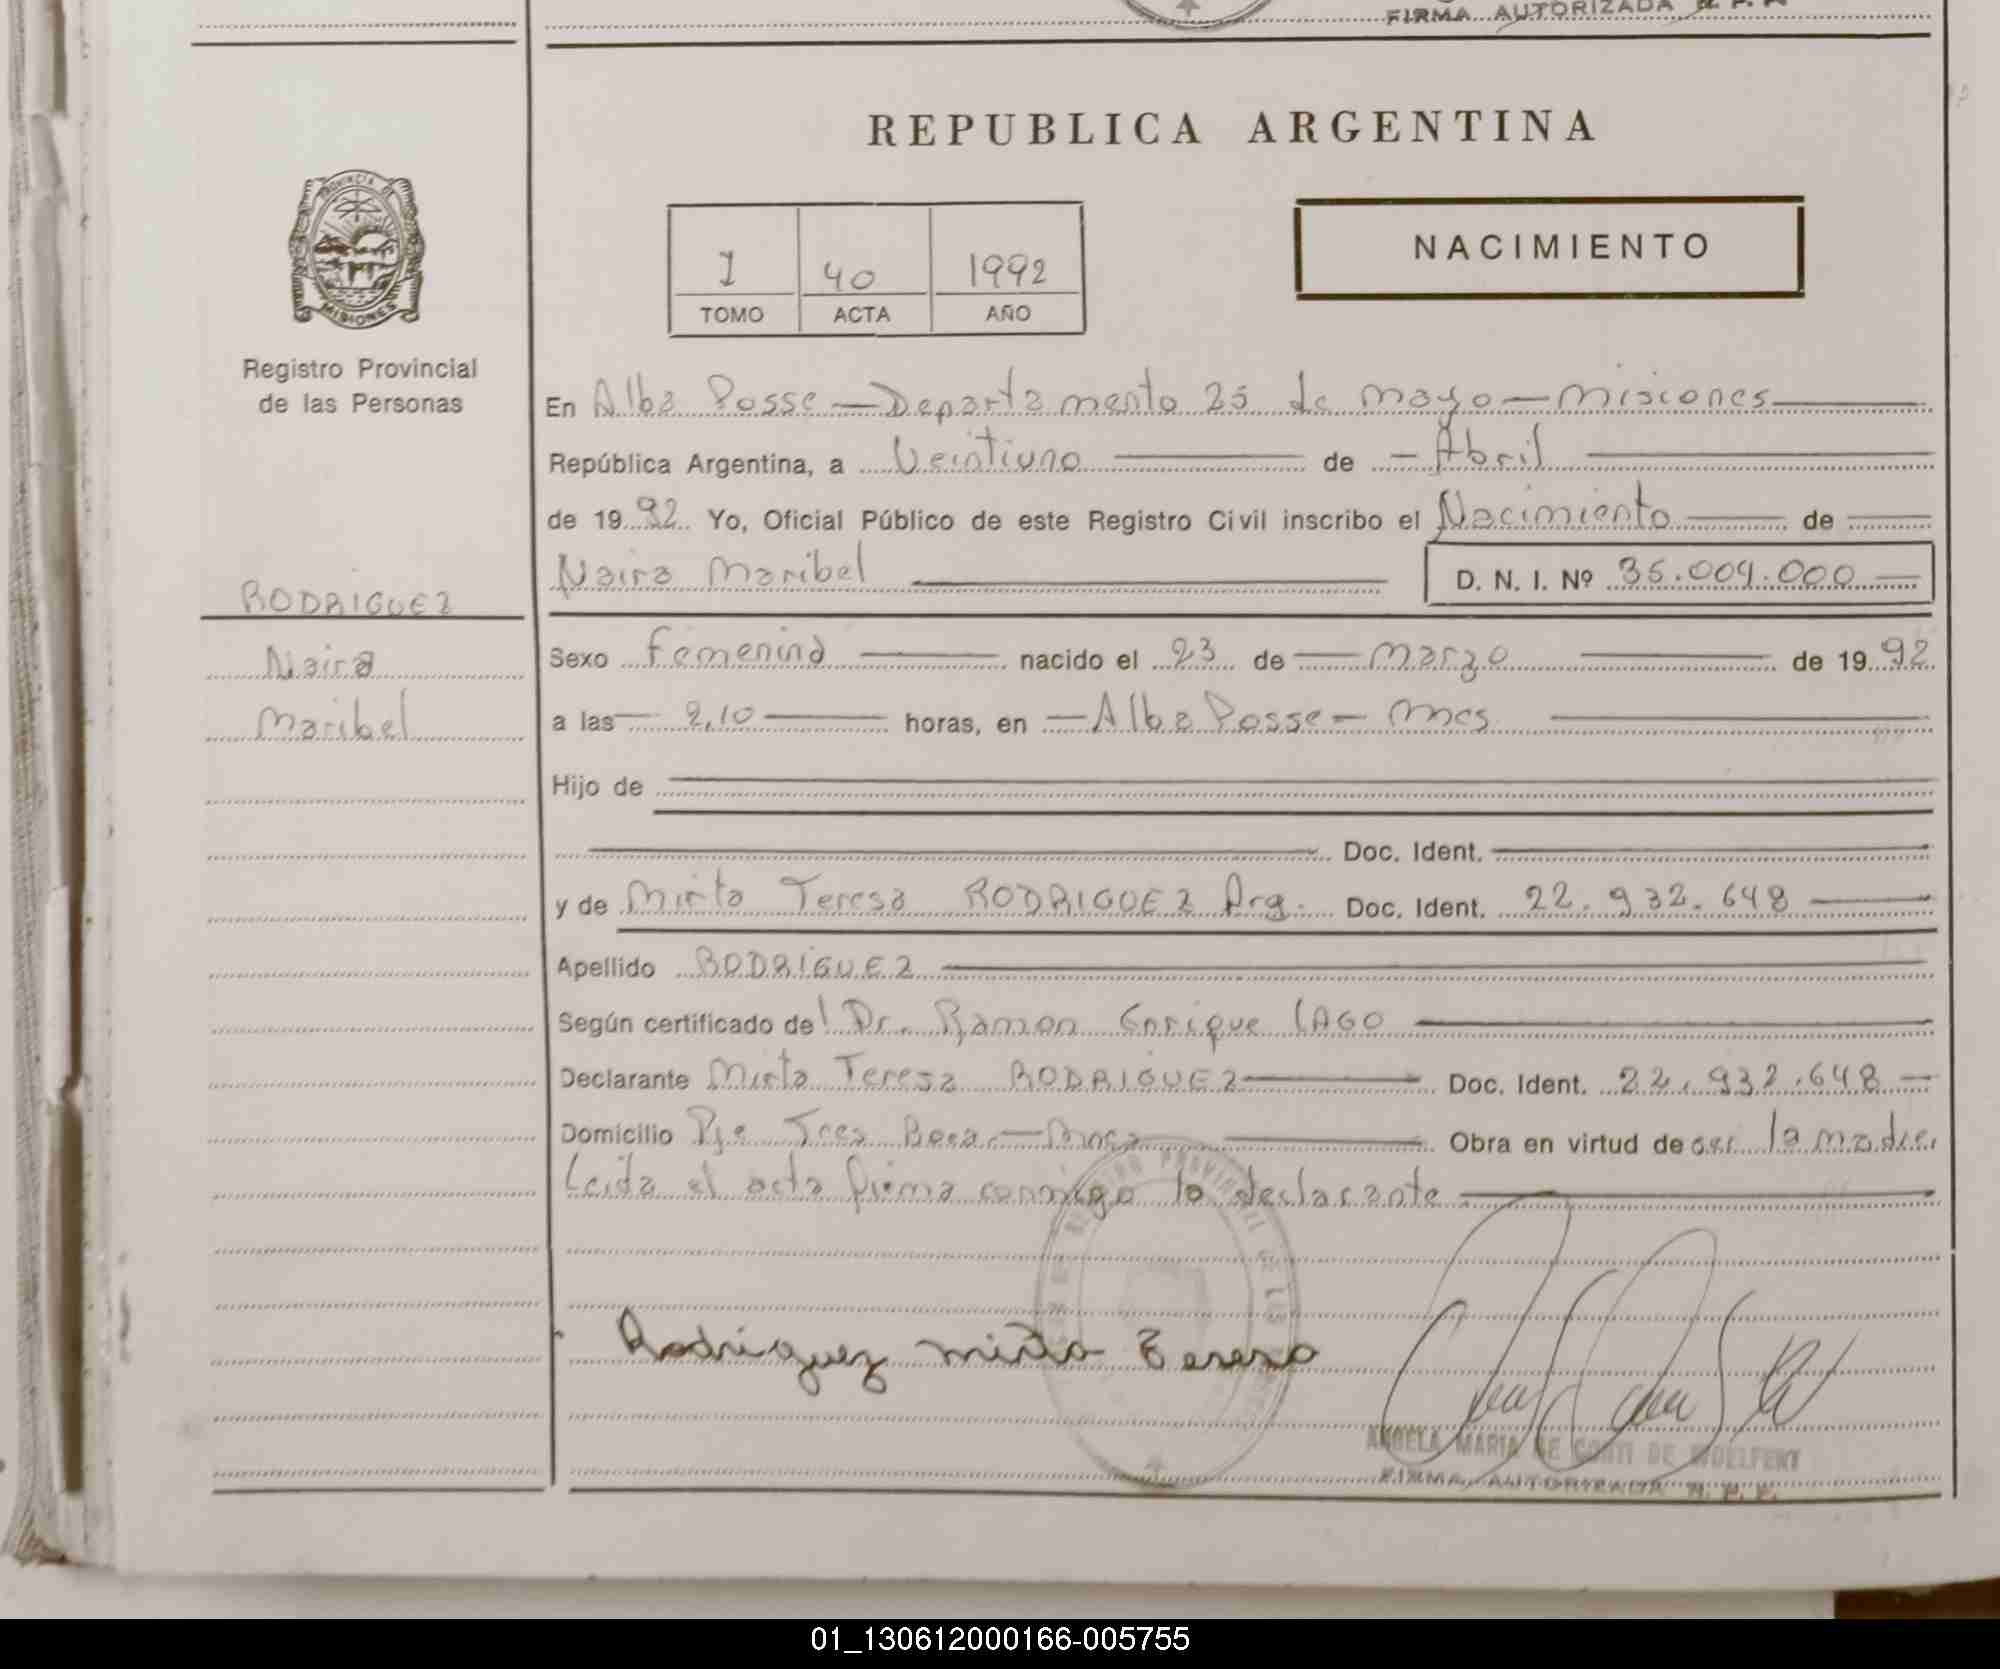 FIRMA AUTORIZADA R. P. P.
REPUBLICA ARGENTINA
PROVINCIA DE
MISIONES
Registro Provincial
de las Personas
1 40 1992
TOMO ACTA AÑO
NACIMIENTO
En Alba Posse — Departamento 25 de mayo — misiones
República Argentina, a Veintiuno de — Abril
de 19 92 Yo, Oficial Público de este Registro Civil inscribo el Nacimiento de
Naira Maribel D. N. I. Nº 36.004.000
RODRIGUEZ
Naira
Maribel
Sexo Femenino nacido el 23 de — marzo de 19 92
a las 2,10 horas, en — Alba Posse — Mnes
Hijo de
Doc. Ident.
y de Mirta Teresa RODRIGUEZ Arg. Doc. Ident. 22.932.648
Apellido RODRIGUEZ
Según certificado del Dr. Ramon Enrique LAGO
Declarante Mirta Teresa RODRIGUEZ Doc. Ident. 22.932.648
Domicilio Pje Tres Boca. — Mnes Obra en virtud de ser la madre.
Leida el acta firma conmigo la declarante
REGISTRO PROVINCIAL DE LAS
Rodriguez mirta Teresa
ANGELA MARIA DE CONTI DE
FIRMA AUTORIZADA R. P. P.
01_130612000166-005755